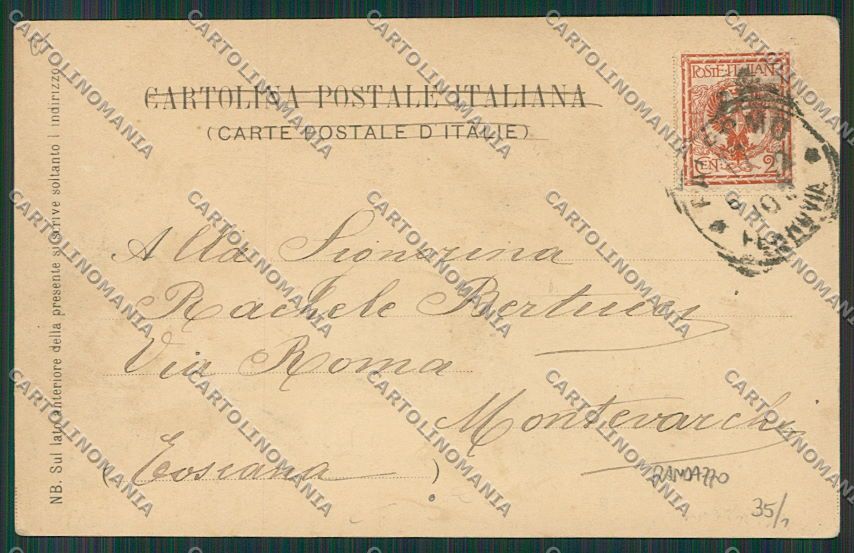 CARTOLINA POSTALE ITALIANA
(CARTE POSTALE D'ITALIE)
POSTE ITALIANE
CEN 2
PALERMO
FERROVIA
Alla Signorina
Rachele Bertucci
Via Roma
Montevarchi
(Toscana)
RANDAZZO
35/
NB. Sul lato anteriore della presente si scrive soltanto l indirizzo
CARTOLINOMANIA